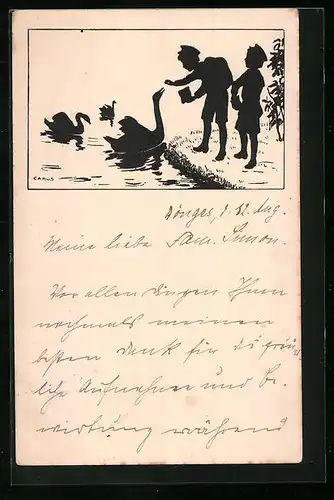 CARUS
Dönges, d. 12. Aug.
Meine liebe Fam. Simon.
Vor allen Dingen Ihnen
nochmals meinen
besten Dank für die freund-
liche Aufnahme und Be-
wirtung während